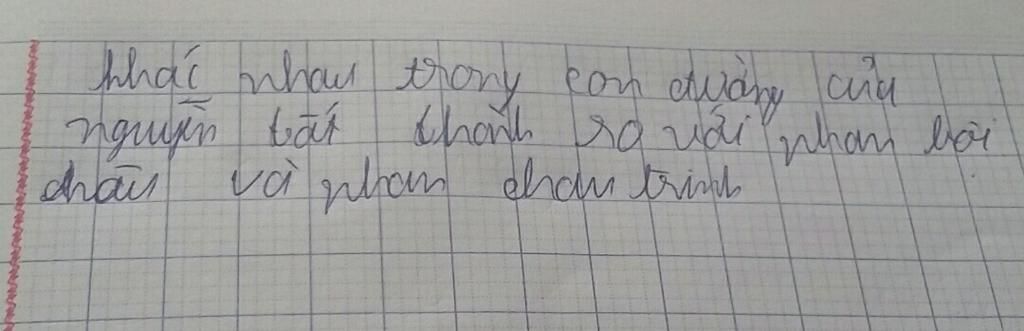 khác nhau trong con đường của
nguyễn tất thành so với phan bội
châu và phan chau trinh